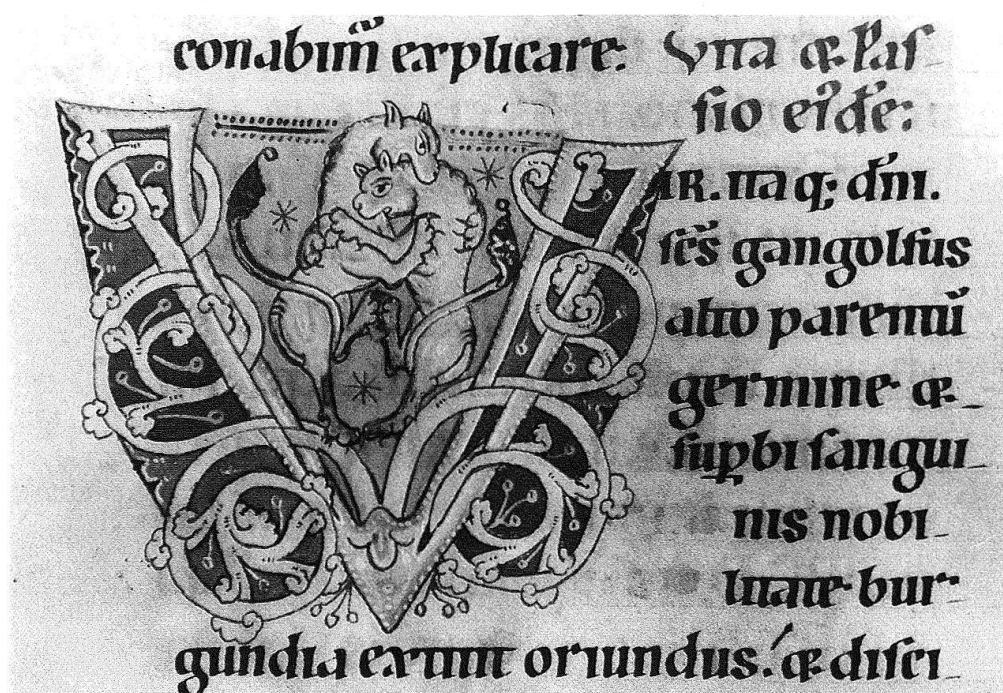 conabim̃ explicare: Vita & Pas-
sio eiꝰdē:
IR. itaq; dn̄i.
sc̄s gangolfus
alto parentū
germine &
suꝑbi sangui-
nis nobi-
litate bur-
gundia extitit oriundus: & disci-